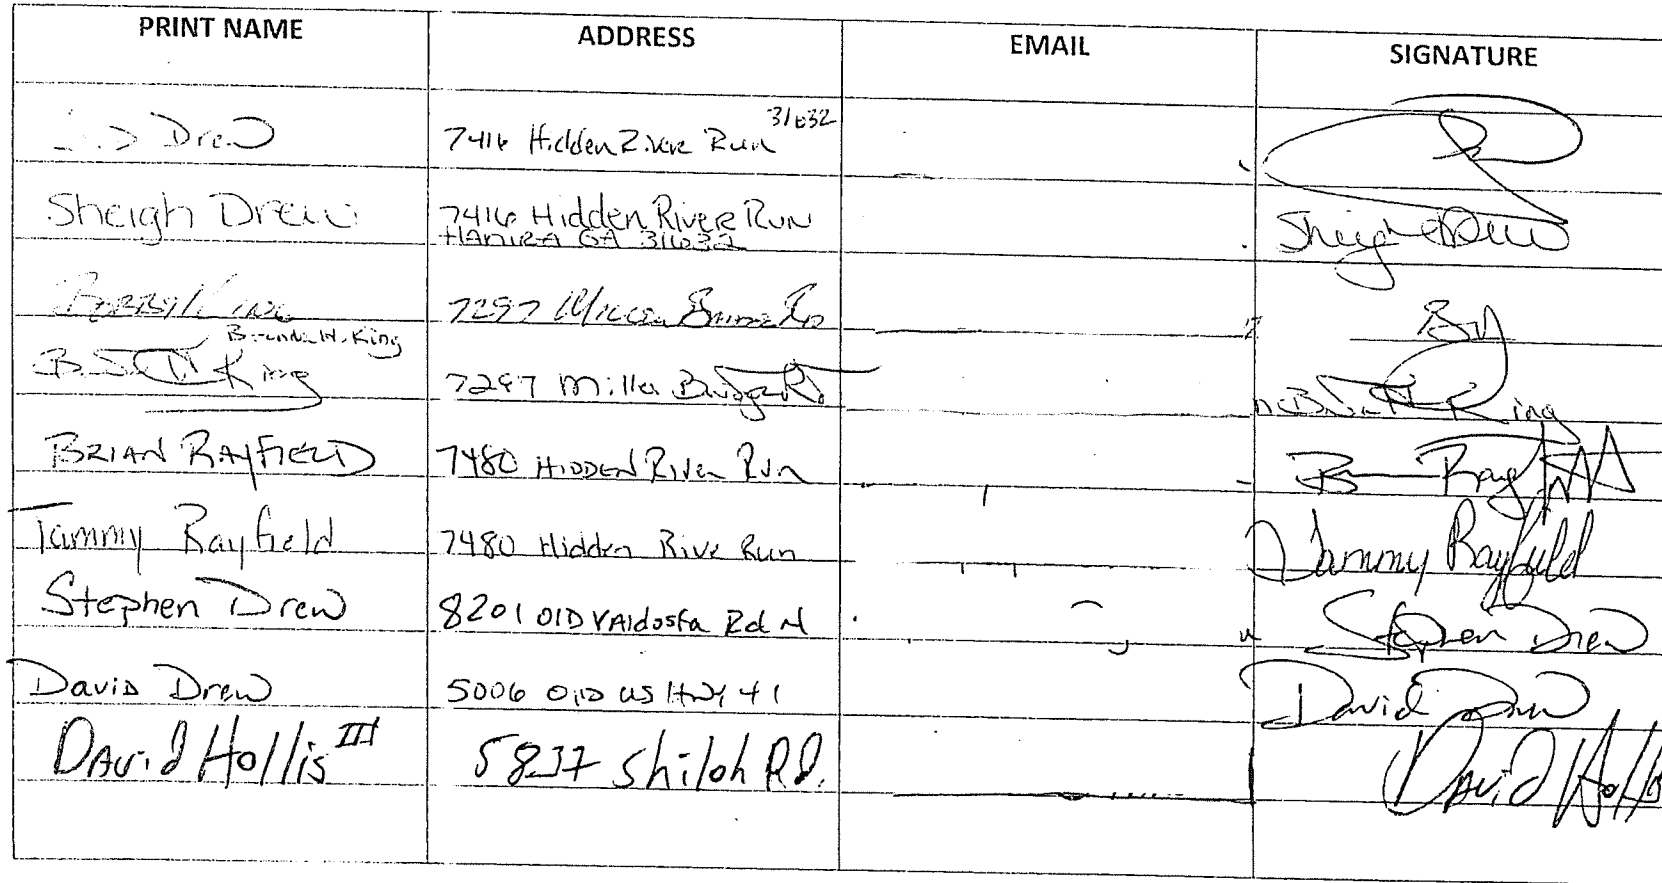 PRINT NAME ADDRESS EMAIL SIGNATURE
Drew 7416 Hidden River Run 31632
Sheigh Drew 7416 Hidden River Run Sheigh Drew
HAHIRA GA 31632
Bobby King 7297
Brenda H. King
King 7297 Miller Bridge Rd King
BRIAN RAYFIELD 7480 HIDDEN River Run
Tammy Rayfield 7480 Hidden Rive Run Tammy Rayfield
Stephen Drew 8201 OlD VAldosta Rd N Stephen Drew
David Drew 5006 OlD US Hwy 41 David Drew
DAviD Hollis III 5837 Shiloh RD. DAviD Hollis